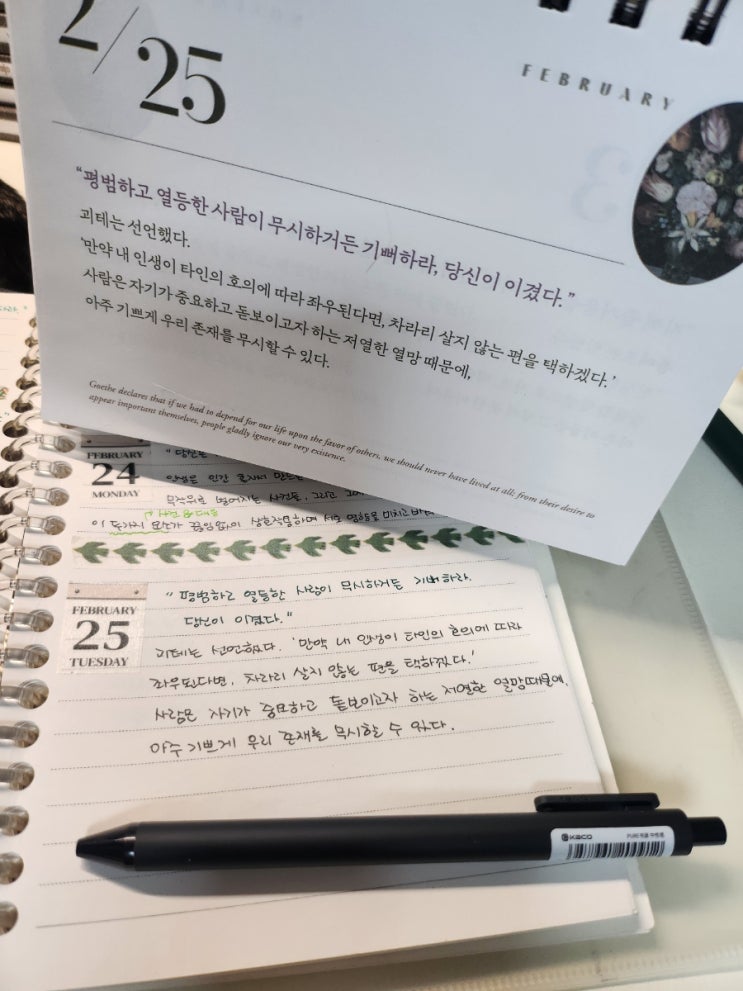 2/25
FEBRUARY
"평범하고 열등한 사람이 무시하거든 기뻐하라, 당신이 이겼다."
괴테는 선언했다.
'만약 내 인생이 타인의 호의에 따라 좌우된다면, 차라리 살지 않는 편을 택하겠다.'
사람은 자기가 중요하고 돋보이고자 하는 저열한 열망 때문에,
아주 기쁘게 우리 존재를 무시할 수 있다.
Goethe declares that if we had to depend for our life upon the favor of others, we should never have lived at all; from their desire to
appear important themselves, people gladly ignore our very existence.
FEBRUARY
24
MONDAY
무작위로 벌어지는 사건들, 그리고
이 두가지 요인가 끊임없이 상호작용하며 서로 영향을 미치고
FEBRUARY
25
TUESDAY
"평범하고 열등한 사람이 무시하거든 기뻐하라.
당신이 이겼다."
괴테는 선언했다. '만약 내 인생이 타인의 호의에 따라
좌우된다면, 차라리 살지 않는 편을 택하겠다.'
사람은 자기가 중요하고 돋보이고자 하는 저열한 열망때문에,
아주 기쁘게 우리 존재를 무시할 수 있다.
KACO